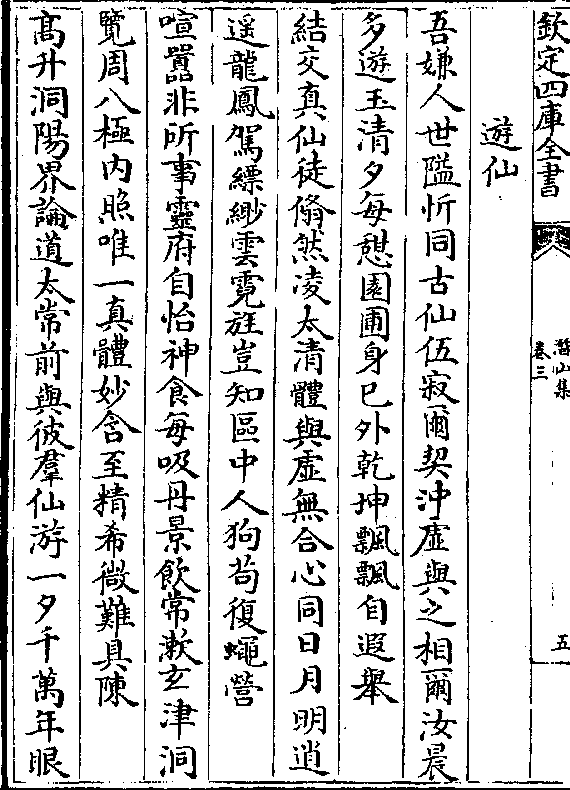 欽定四庫全書
潛山集
卷三
五
遊仙
吾嫌人世隘忻同古仙伍寂爾契沖虛與之相爾汝晨
多遊玉清夕每憇園圃身已外乾坤飄飄自遐舉
結交真仙徒翛然凌太清體與虛無合心同日月明逍
遥龍鳳駕縹緲雲霓旌豈知區中人狗苟復蠅營
喧囂非所事靈府自怡神食每吸丹景飲常漱玄津洞
覽周八極内照唯一真體妙含至精希微難具陳
髙升洞陽界論道太常前與彼羣仙游一夕千萬年眼